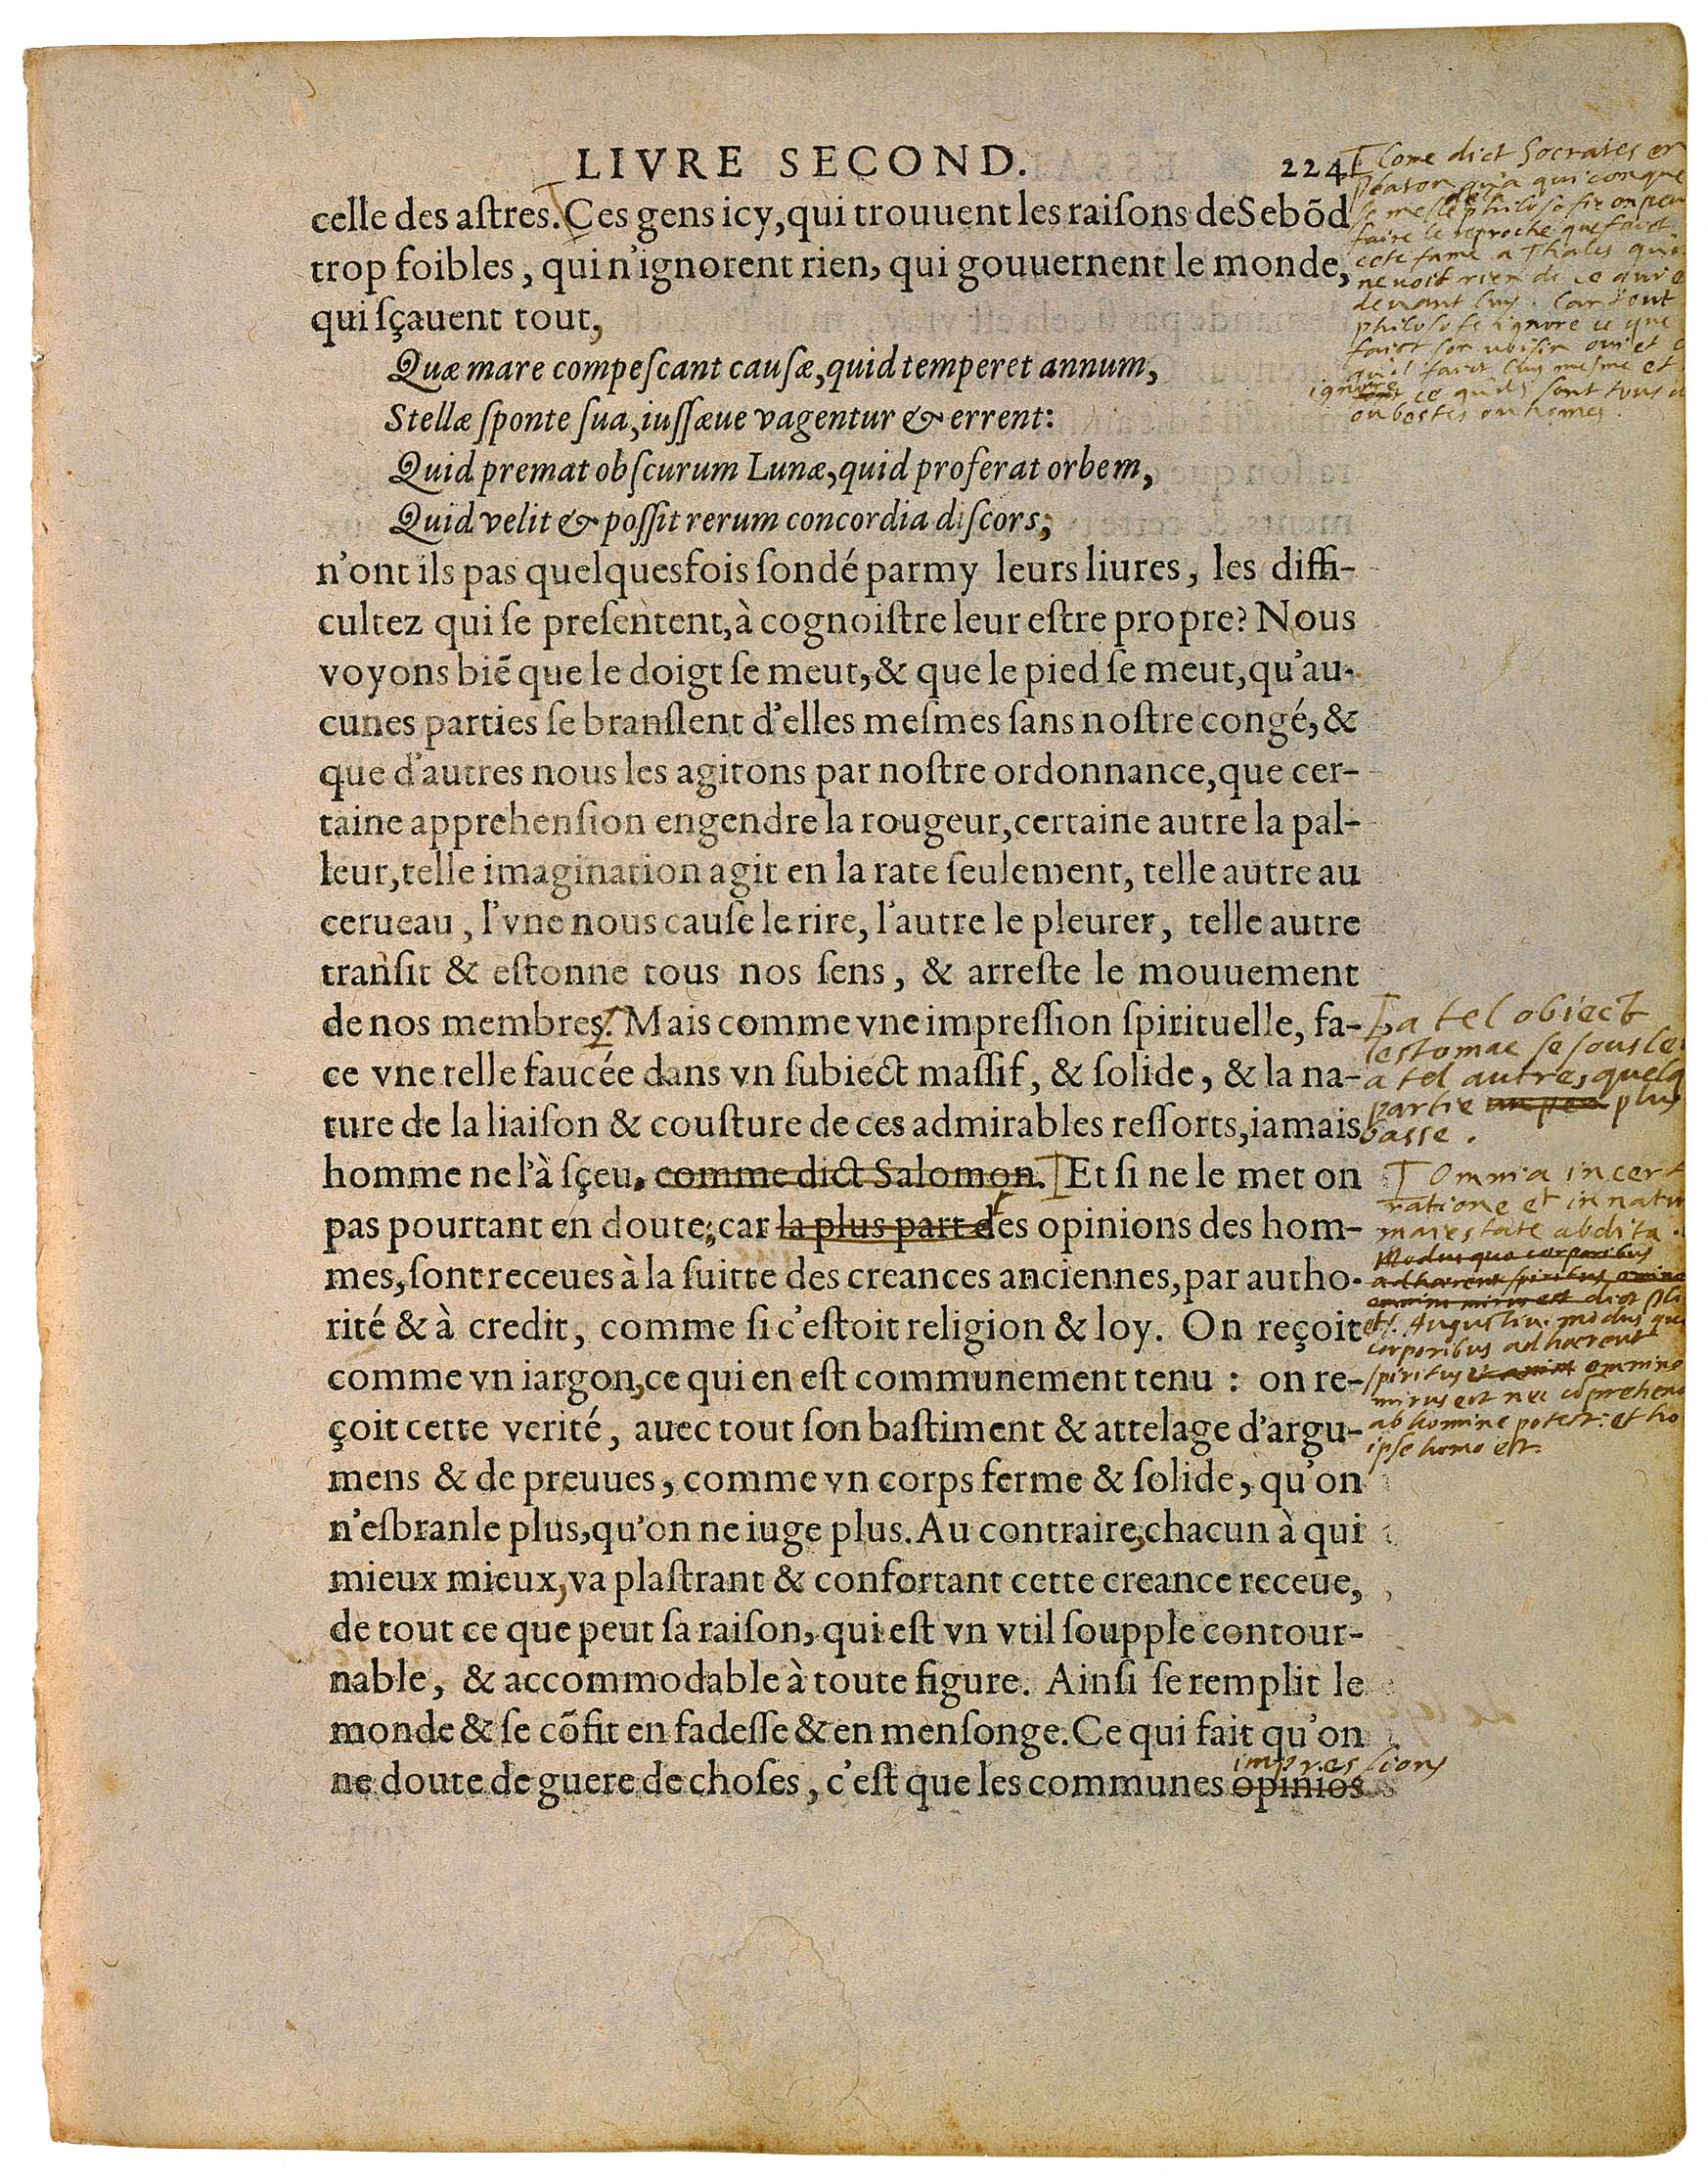 LIVRE SECOND. 224
celle des aſtres. Ces gens icy, qui trouuent les raiſons de Sebõd
trop foibles, qui n'ignorent rien, qui gouuernent le monde,
qui ſçauent tout,
Quæ mare compeſcant cauſæ, quid temperet annum,
Stellæ ſponte ſua, iuſſæue vagentur & errent:
Quid premat obſcurum Lunæ, quid proferat orbem,
Quid velit & poſſit rerum concordia diſcors;
n'ont ils pas quelquesfois ſondé parmy leurs liures, les diffi-
cultez qui ſe preſentent, à cognoiſtre leur eſtre propre? Nous
voyons biē que le doigt ſe meut, & que le pied ſe meut, qu'au-
cunes parties ſe branſlent d'elles meſmes ſans noſtre congé, &
que d'autres nous les agitons par noſtre ordonnance, que cer-
taine apprehenſion engendre la rougeur, certaine autre la pal-
leur, telle imagination agit en la rate ſeulement, telle autre au
cerueau, l'vne nous cauſe le rire, l'autre le pleurer, telle autre
tranſit & eſtonne tous nos ſens, & arreſte le mouuement
de nos membres. Mais comme vne impreſſion ſpirituelle, fa-
ce vne telle faucée dans vn ſubiect maſſif, & ſolide, & la na-
ture de la liaiſon & couſture de ces admirables reſſorts, iamais
homme ne l'à ſçeu, comme dict Salomon. Et ſi ne le met on
pas pourtant en doute; car la plus part des opinions des hom-
mes, ſont receues à la ſuitte des creances anciennes, par autho-
rité & à credit, comme ſi c'eſtoit religion & loy. On reçoit
comme vn iargon, ce qui en eſt communement tenu : on re-
çoit cette verité, auec tout ſon baſtiment & attelage d'argu-
mens & de preuues, comme vn corps ferme & ſolide, qu'on
n'eſbranle plus, qu'on ne iuge plus. Au contraire, chacun à qui
mieux mieux, va plaſtrant & confortant cette creance receue,
de tout ce que peut ſa raiſon, qui eſt vn vtil ſoupple contour-
nable, & accommodable à toute figure. Ainſi ſe remplit le
monde & ſe cõfit en fadeſſe & en menſonge. Ce qui fait qu'on
impressions
ne doute de guere de choſes, c'eſt que les communes opiniõs
Come dict Socrates en
Platon qu'a quiconque
se mesle philosofie on peu
faire le reproche que faict
cete fame a Thales qu'il
ne voit rien de ce qui e
devant luy. Car tout
philosofe ignore ce que
faict son voisin oui et
qu'il faict luy mesme et
ignore ce qu'ils sont tous
ou bestes ou homes.
a tel obiect
lestomac se sousle
a tel autre, quelq
partie un peu plus
basse.
Omnia incert
ratione et in natu
maiestate abdita.
Modus quo corporibus
adhærent spiritus omnino
mirus est dict Pli
et S. Augustin. modus qu
corporibus adhærent
spiritus omnino
mirus est nec cōprehend
ab homine potest: et ho
ipse homo est.